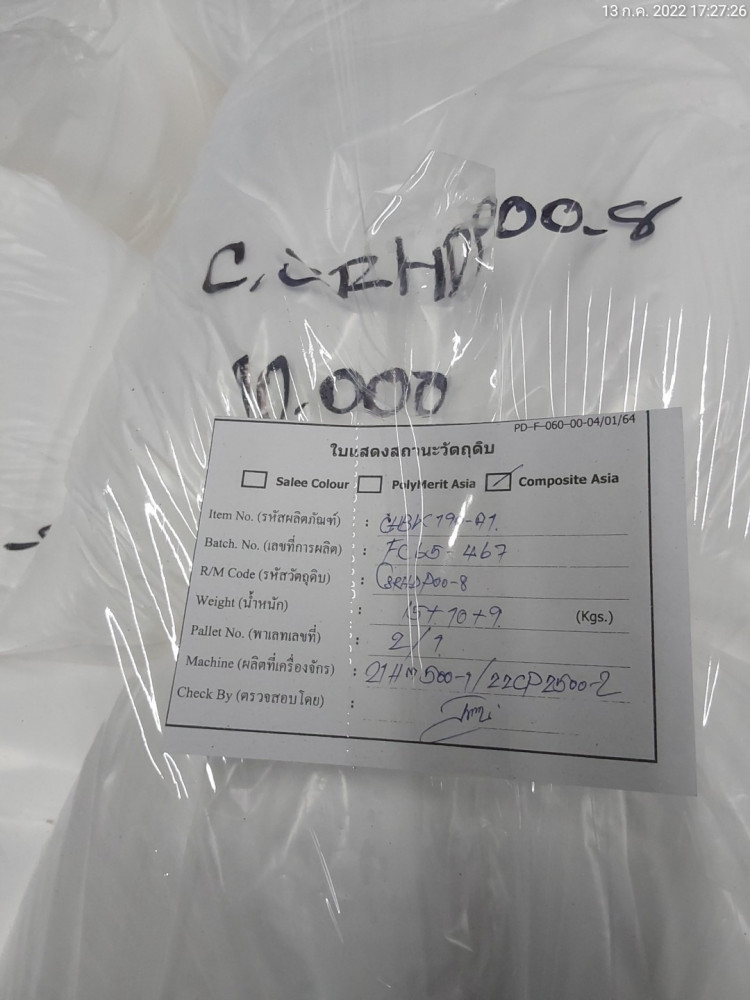 13 ก.ค. 2022 17:27:26
10.000
PD-F-060-00-04/01/64
ใบแสดงสถานะวัตถุดิบ
Salee Colour PolyMerit Asia Composite Asia
Item No. (รหัสผลิตภัณฑ์) :
Batch. No. (เลขที่การผลิต) : FC65-467
R/M Code (รหัสวัตถุดิบ) :
Weight (น้ำหนัก) : 15+10+9 (Kgs.)
Pallet No. (พาเลทเลขที่) : 2/1
Machine (ผลิตที่เครื่องจักร) : 21HM500-1/22CP2500-2
Check By (ตรวจสอบโดย) :